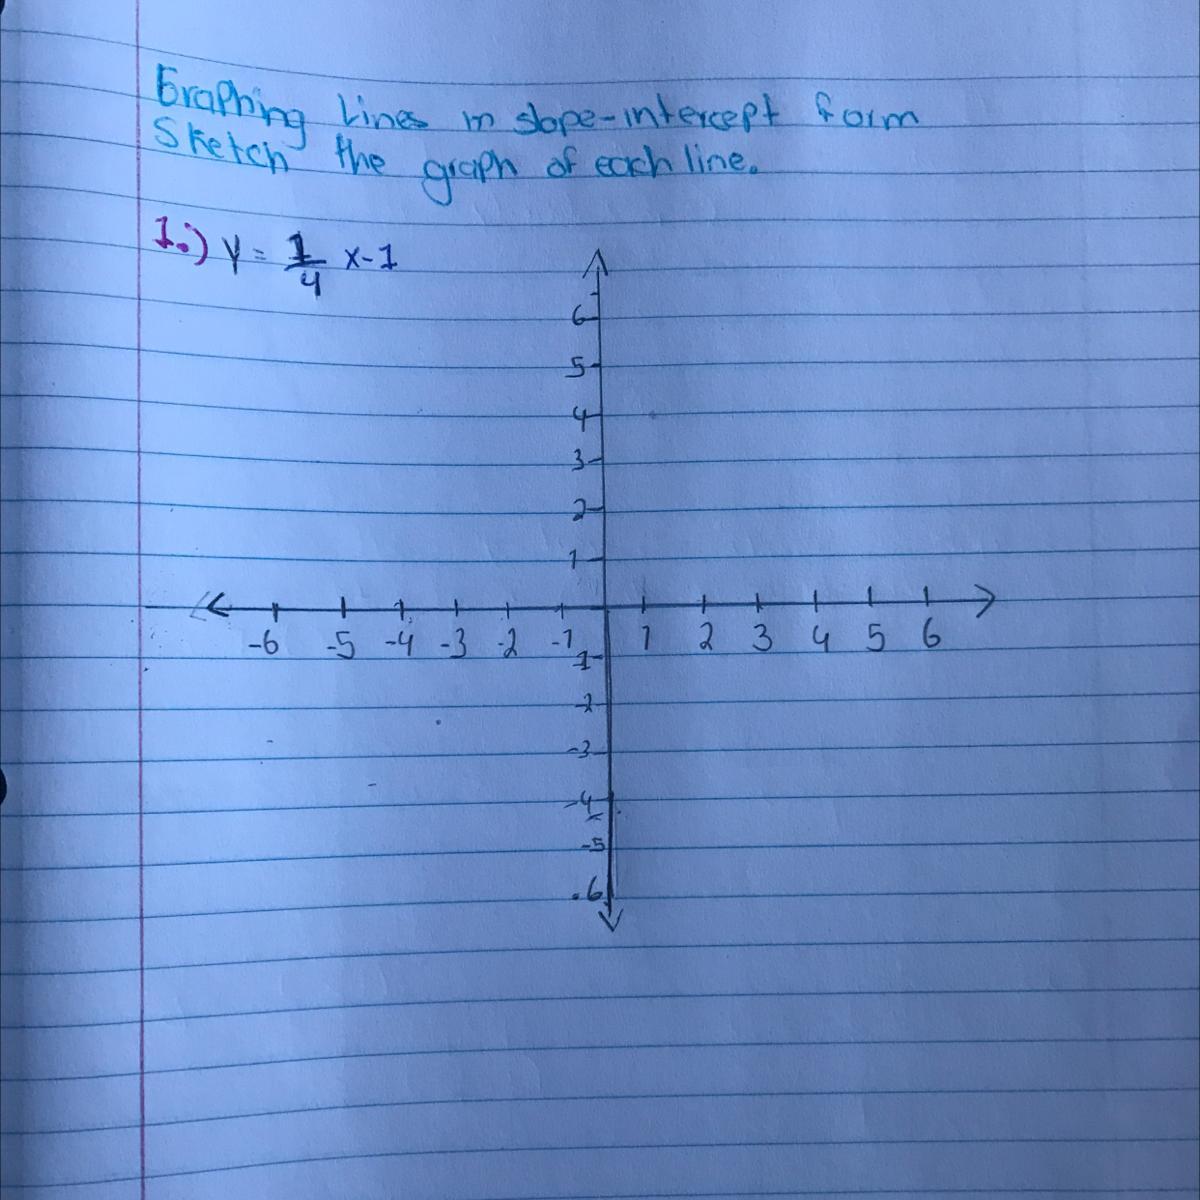 Graphing Lines in slope-intercept form
Sketch the graph of each line.
1.) y = 1/4 x-1
6
5
4
3
2
1
-6 -5 -4 -3 -2 -1 1 2 3 4 5 6
-1
-2
-3
-4
-5
-6